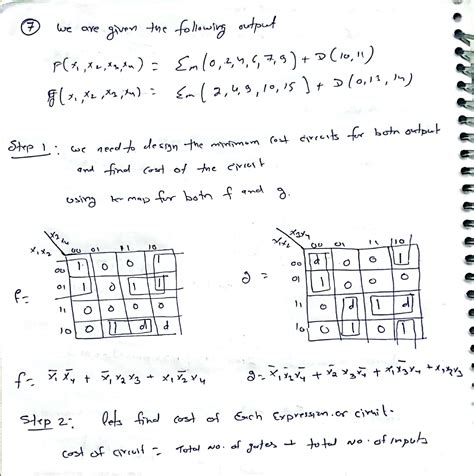 ⑦ we are given the following output
f(x₁,x₂,x₃,x₄) = Σm(0,2,4,6,7,9) + D(10,11)
g(x₁,x₂,x₃,x₄) = Σm(2,4,9,10,15) + D(0,13,14)
Step 1: we need to design the minimum cost circuits for both output
and find cost of the circuit
using k-map for both f and g.
x₁x₂ 00 01 11 10
00 1 0 0 1
01 1 0 1 1
11 0 0 0 0
10 0 1 d d
f=
x₃x₄
x₁x₂ 00 01 11 10
00 d 0 0 1
01 1 0 0 0
11 0 d 1 d
10 0 1 0 1
g=
f= x̄₁x̄₄ + x̄₁x₂x₃ + x₁x̄₂x₄
Step 2: lets find cost of each expression or circuit.
cost of circuit = Total no. of gates + total no. of inputs